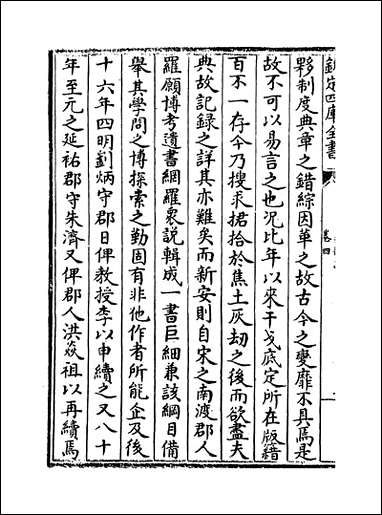 欽定四庫全書
卷四
夥制度典章之錯綜因革之故古今之變靡不具焉是
故不可以易言之也況比年以來干戈底定所在版籍
百不一存今乃搜求捃拾於焦土灰劫之後而欲盡夫
典故記録之詳其亦難矣而新安則自宋之南渡郡人
羅願博考遺書網羅衆説輯成一書巨細兼該綱目備
舉其學問之博探索之勤固有非他作者所能企及後
十六年四明劉炳守郡日俾教授李以申續之又八十
年至元之延祐郡守朱濟又俾郡人洪焱祖以再續焉